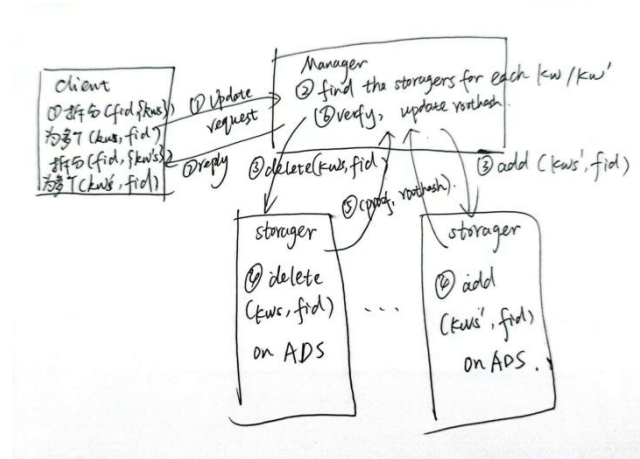 client
① 拆分(fid,{kws})
为多个(kws, fid)
拆分(fid, {kws'})
为多个(kws', fid)
① Update
request
⑦ reply
Manager
② find the storagers for each kw/kw'
⑥ verify, update roothash.
③ delete(kws, fid)
⑤ (proof, roothash).
③ add (kws', fid)
storager
④ delete
(kws, fid)
on ADS
...
storager
④ add
(kws', fid)
on ADS.